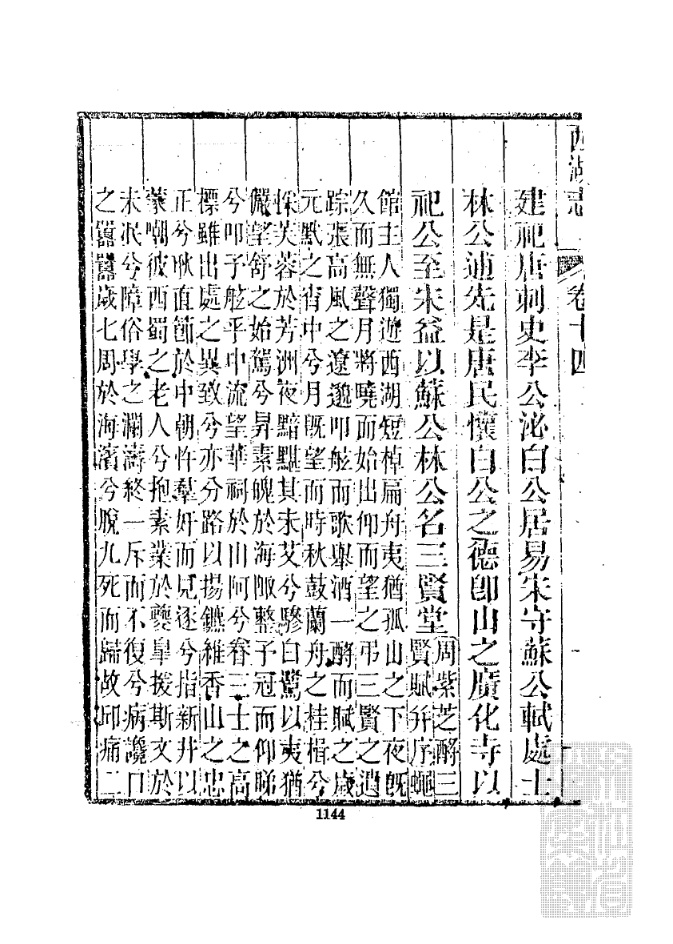 西湖志 卷十四
建祀唐刺史李公泌白公居易宋守蘇公軾處士
林公逋先是唐民懷白公之德卽山之廣化寺以
祀公至宋益以蘇公林公名三賢堂周紫芝酹三
賢賦并序蠅
館主人獨遊西湖短棹扁舟夷猶孤山之下夜旣
久而無聲月將曉而始出仰而望之弔三賢之遺
踪張高風之遼邈叩舷而歌舉酒一酹而賦之歲
元黓之宵中兮月旣望而時秋鼓蘭舟之桂楫兮
採芙蓉於芳洲夜黯黮其未艾兮驂白鷺以夷猶
儼望舒之始駕兮昇素魄於海陬整予冠而仰睇
兮叩予舷乎中流望華祠於山阿兮眷三士之高
標雖出處之異致兮亦分路以揚鑣維香山之忠
正兮耿直節於中朝忤羣奸而見逐兮指新井以
蒙嘲彼西蜀之老人兮抱素業於夔皐援斯文於
未泯兮障俗學之瀾濤終一斥而不復兮病讒口
之囂囂歲七周於海濱兮脫九死而歸故邱痛二
1144